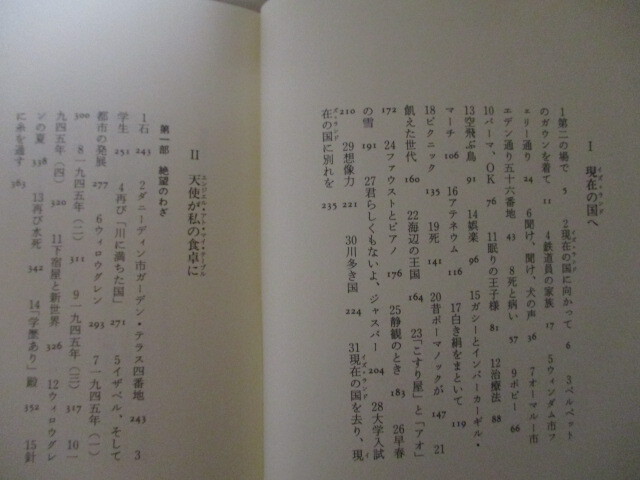 I 現在の国へ
イズ・ランド
1 第二の場で 5 2 現在の国に向かって 6 3 ベルベット
イズ・ランド
のガウンを着て 11 4 鉄道員の家族 17 5 ウィンダム市フ
ェリー通り 24 6 聞け、聞け、犬の声 36 7 オーマルー市
エデン通り五十六番地 43 8 死と病い 57 9 ポピー 66
10 パーマ、OK 76 11 眠りの王子様 81 12 治療法 88
13 空飛ぶ鳥 91 14 娯楽 96 15 ガシーとインバーカーギル・
マーチ 106 16 アテネウム 116 17 白き絹をまといて 119
18 ピクニック 135 19 死 141 20 昔ポーマノックが、 147 21
飢えた世代 160 22 海辺の王国 164 23 「こすり屋」と「アオ」
172 24 ファウストとピアノ 176 25 静観のとき 183 26 早春
の雪 191 27 君らしくもないよ、ジャスパー 204 28 大学入試
210 29 想像力 221 30 川多き国 224 31 現在の国を去り、現
イズ・ランド
在の国に別れを 235
II 天使が私の食卓に
エンジェル・アット・マイ・テーブル
第一部 絶望のわざ
1 石 243 2 ダニーディン市ガーデン・テラス四番地 243 3
学生 251 4 再び「川に満ちた国」 271 5 イザベル、そして
都市の発展 277 6 ウィロウグレン 293 7 一九四五年(一)
300 8 一九四五年(二) 311 9 一九四五年(三) 317 10 一
九四五年(四) 320 11 下宿屋と新世界 326 12 ウィロウグレ
ンの夏 338 13 再び水死 342 14 「学歴あり」殿 352 15 針
に糸を通す 363